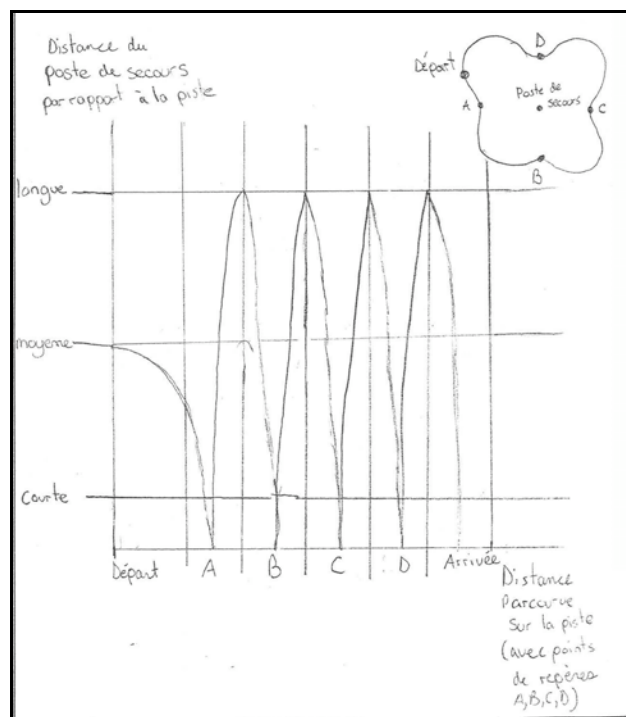 Distance du
poste de secours
par rapport à la piste
D
Départ
A
Poste de
secours
C
B
longue
moyenne
Courte
Départ
A
B
C
D
Arrivée
Distance
Parcourue
Sur la piste
(avec points
de repères
A,B,C,D)